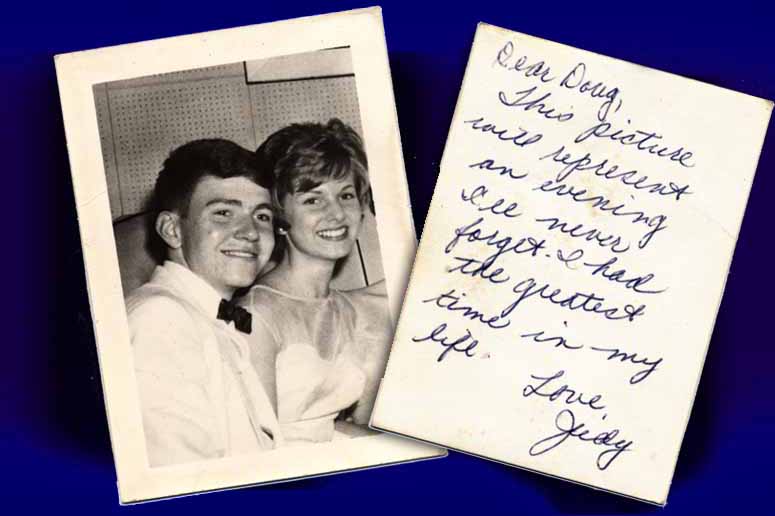 Dear Doug,
This picture
will represent
an evening
I'll never
forget. I had
the greatest
time in my
life.
Love,
Judy